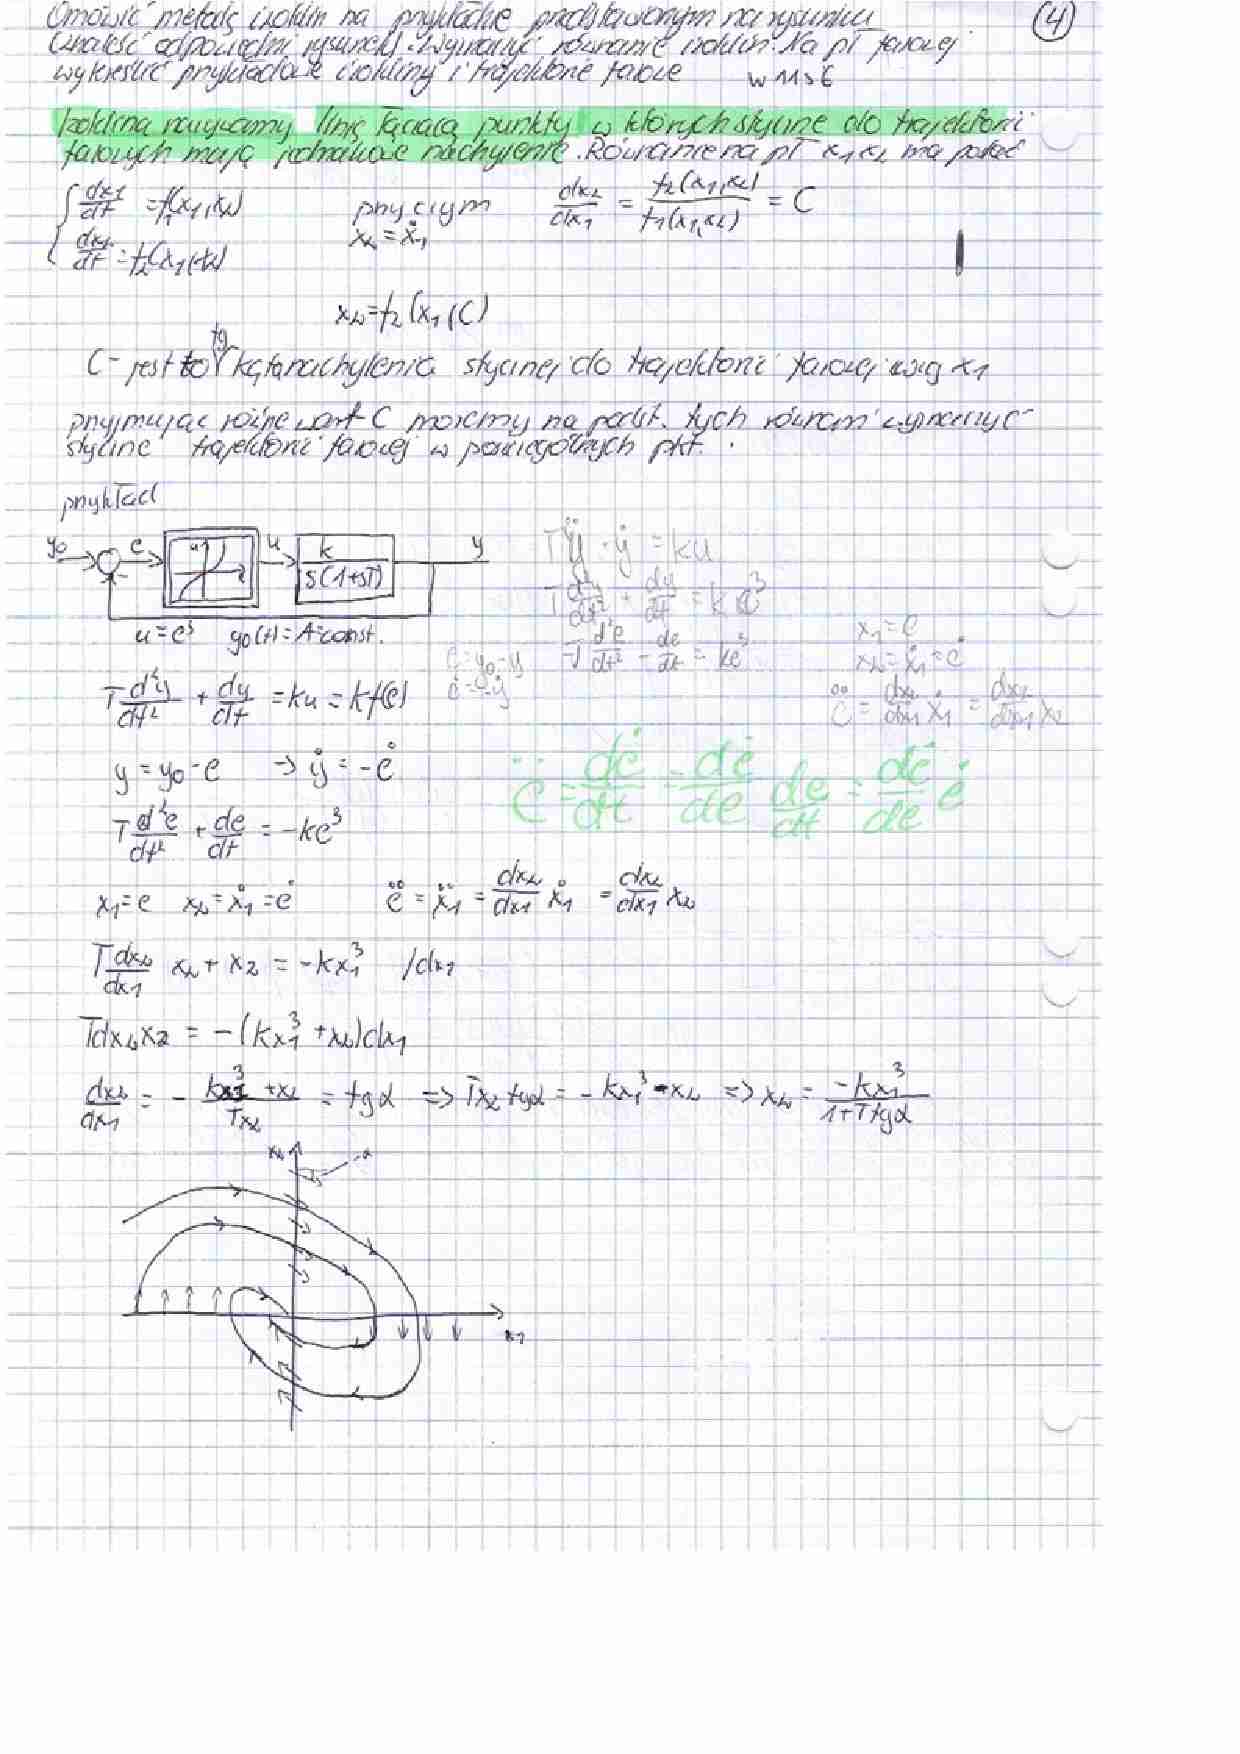 Omówić metodę izoklin na przykładzie przedstawionym na rysunku (4)
(znaleść odpowiedni rysunek). Wyznaczyć równanie izoklin. Na pł fazowej
wykreślić przykładowe izokliny i trajektorie fazowe
Izokliną nazywamy linię łączącą punkty w których styczne do trajektorii
fazowych mają jednakowe nachylenie. Równanie na pł x₁x₂ ma postać
dx1/dt = f₁(x₁,x₂) przy czym dx₂/dx₁ = f₂(x₁,x₂)/f₁(x₁,x₂) = C
dx₂/dt = f₂(x₁,x₂) x₂ = ẋ₁
x₂ = f₂(x₁,C)
C - jest to tg kąta nachylenia stycznej do trajektorii fazowej wzg x₁
przyjmując różne wart C możemy na podst. tych równań wyznaczyć
styczne trajektorii fazowej w poszczególnych pkt.
przykład
y₀ e u e u k/s(1+sT) y
u = e³ y₀(t) = A = const.
Tÿ + ẏ = ku
T d²y/dt² + dy/dt = k e³
-T d²e/dt² - de/dt = ke³
e = y₀ - y
ė = -ẏ
x₁ = e
x₂ = ẋ₁ = ė
ë = dx₂/dx₁ ẋ₁ = dx₂/dx₁ x₂
T d²y/dt² + dy/dt = ku = kf(e)
y = y₀ - e → ẏ = -ė
ë = dė/dt = dė/de de/dt = dė/de ė
T d²e/dt² + de/dt = -ke³
x₁ = e x₂ = ẋ₁ = ė ë = ẍ₁ = dx₂/dx₁ ẋ₁ = dx₂/dx₁ x₂
T dx₂/dx₁ x₂ + x₂ = -kx₁³ /dx₁
Tdx₂x₂ = -(kx₁³ + x₂)dx₁
dx₂/dx₁ = - kx₁³ + x₂/Tx₂ = tgα => Tx₂ tgα = -kx₁³ - x₂ => x₂ = -kx₁³/1+Ttgα
x₂
x₁